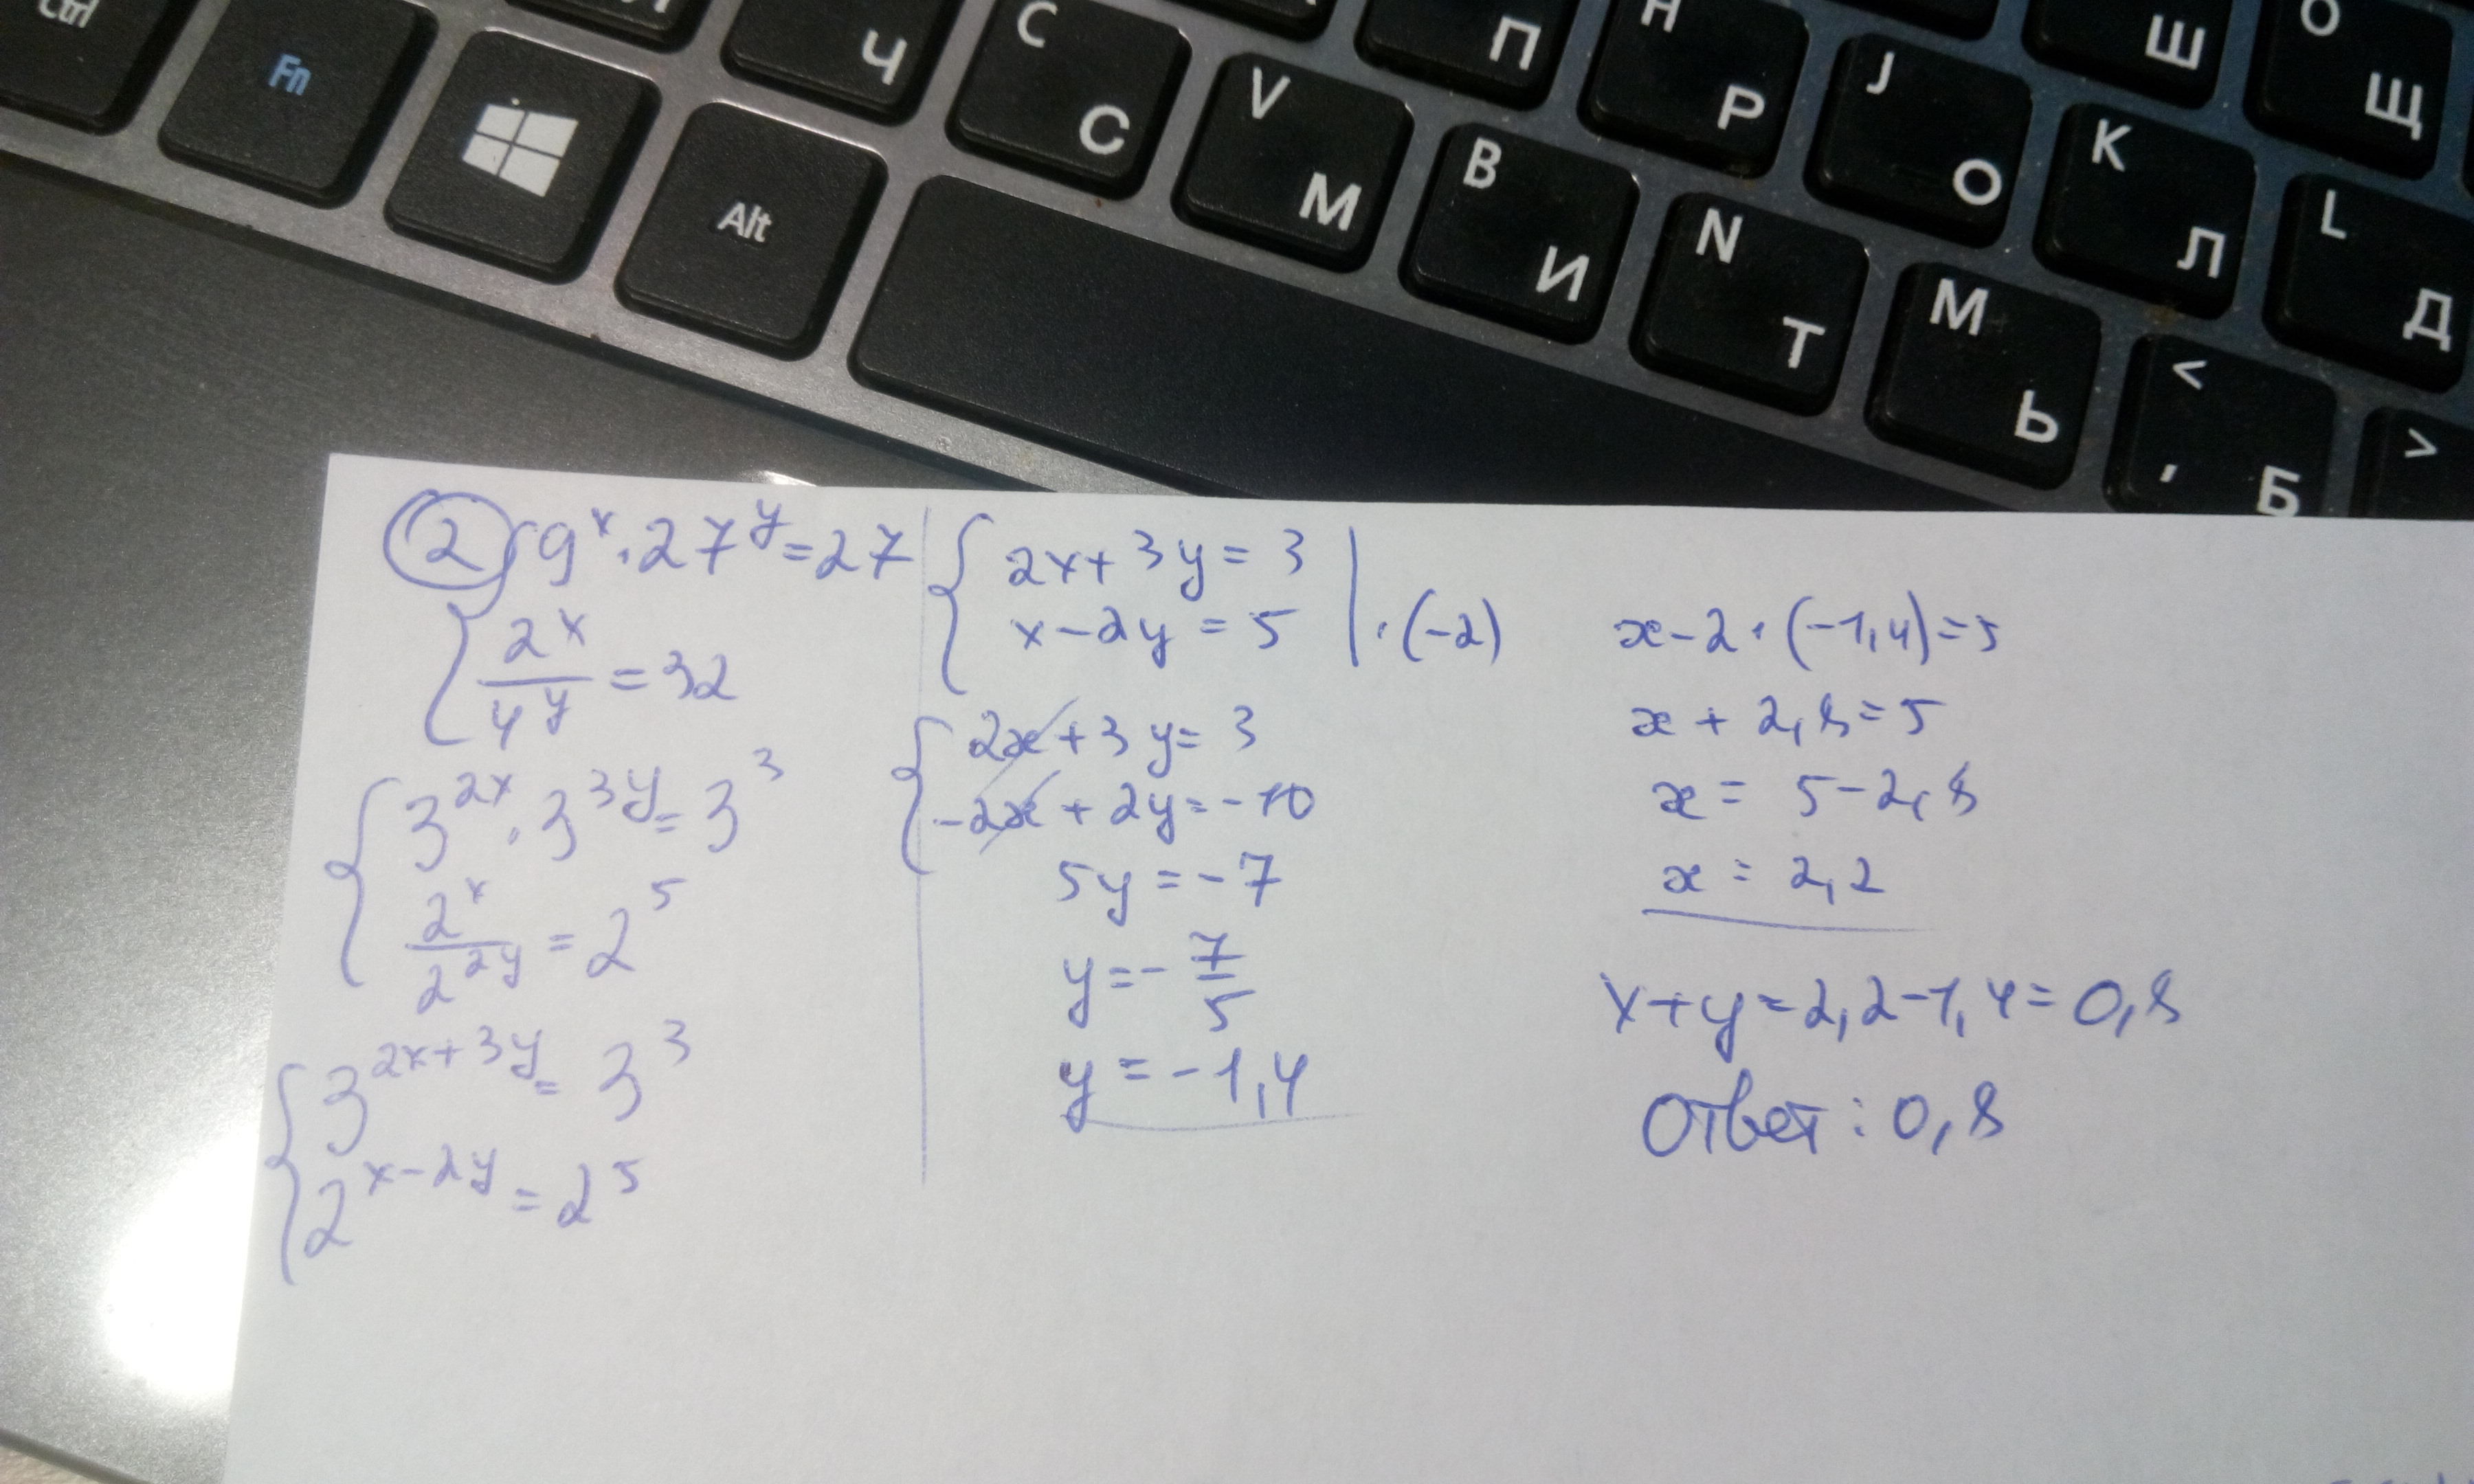 Ctrl
Fn
Alt
Ч
C С
V М
П
B И
H Р
N Т
J О
M Ь
Ш
K Л
< , Б
О Щ
L Д
>
2
9^x · 27^y = 27
2^x / 4^y = 32
3^2x · 3^3y = 3^3
2^x / 2^2y = 2^5
3^2x+3y = 3^3
2^x-2y = 2^5
2x + 3y = 3
x - 2y = 5 | · (-2)
2x + 3y = 3
-2x + 2y = -10
5y = -7
y = - 7/5
y = -1,4
x - 2 · (-1,4) = 5
x + 2,8 = 5
x = 5 - 2,8
x = 2,2
x + y = 2,2 - 1,4 = 0,8
Ответ : 0,8